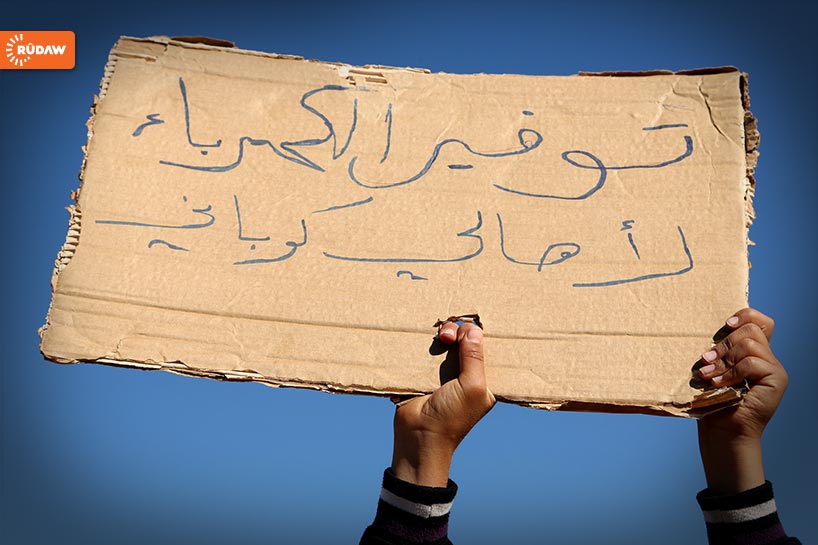 RÛDAW
توفير الكهرباء
لأهالي كوباني